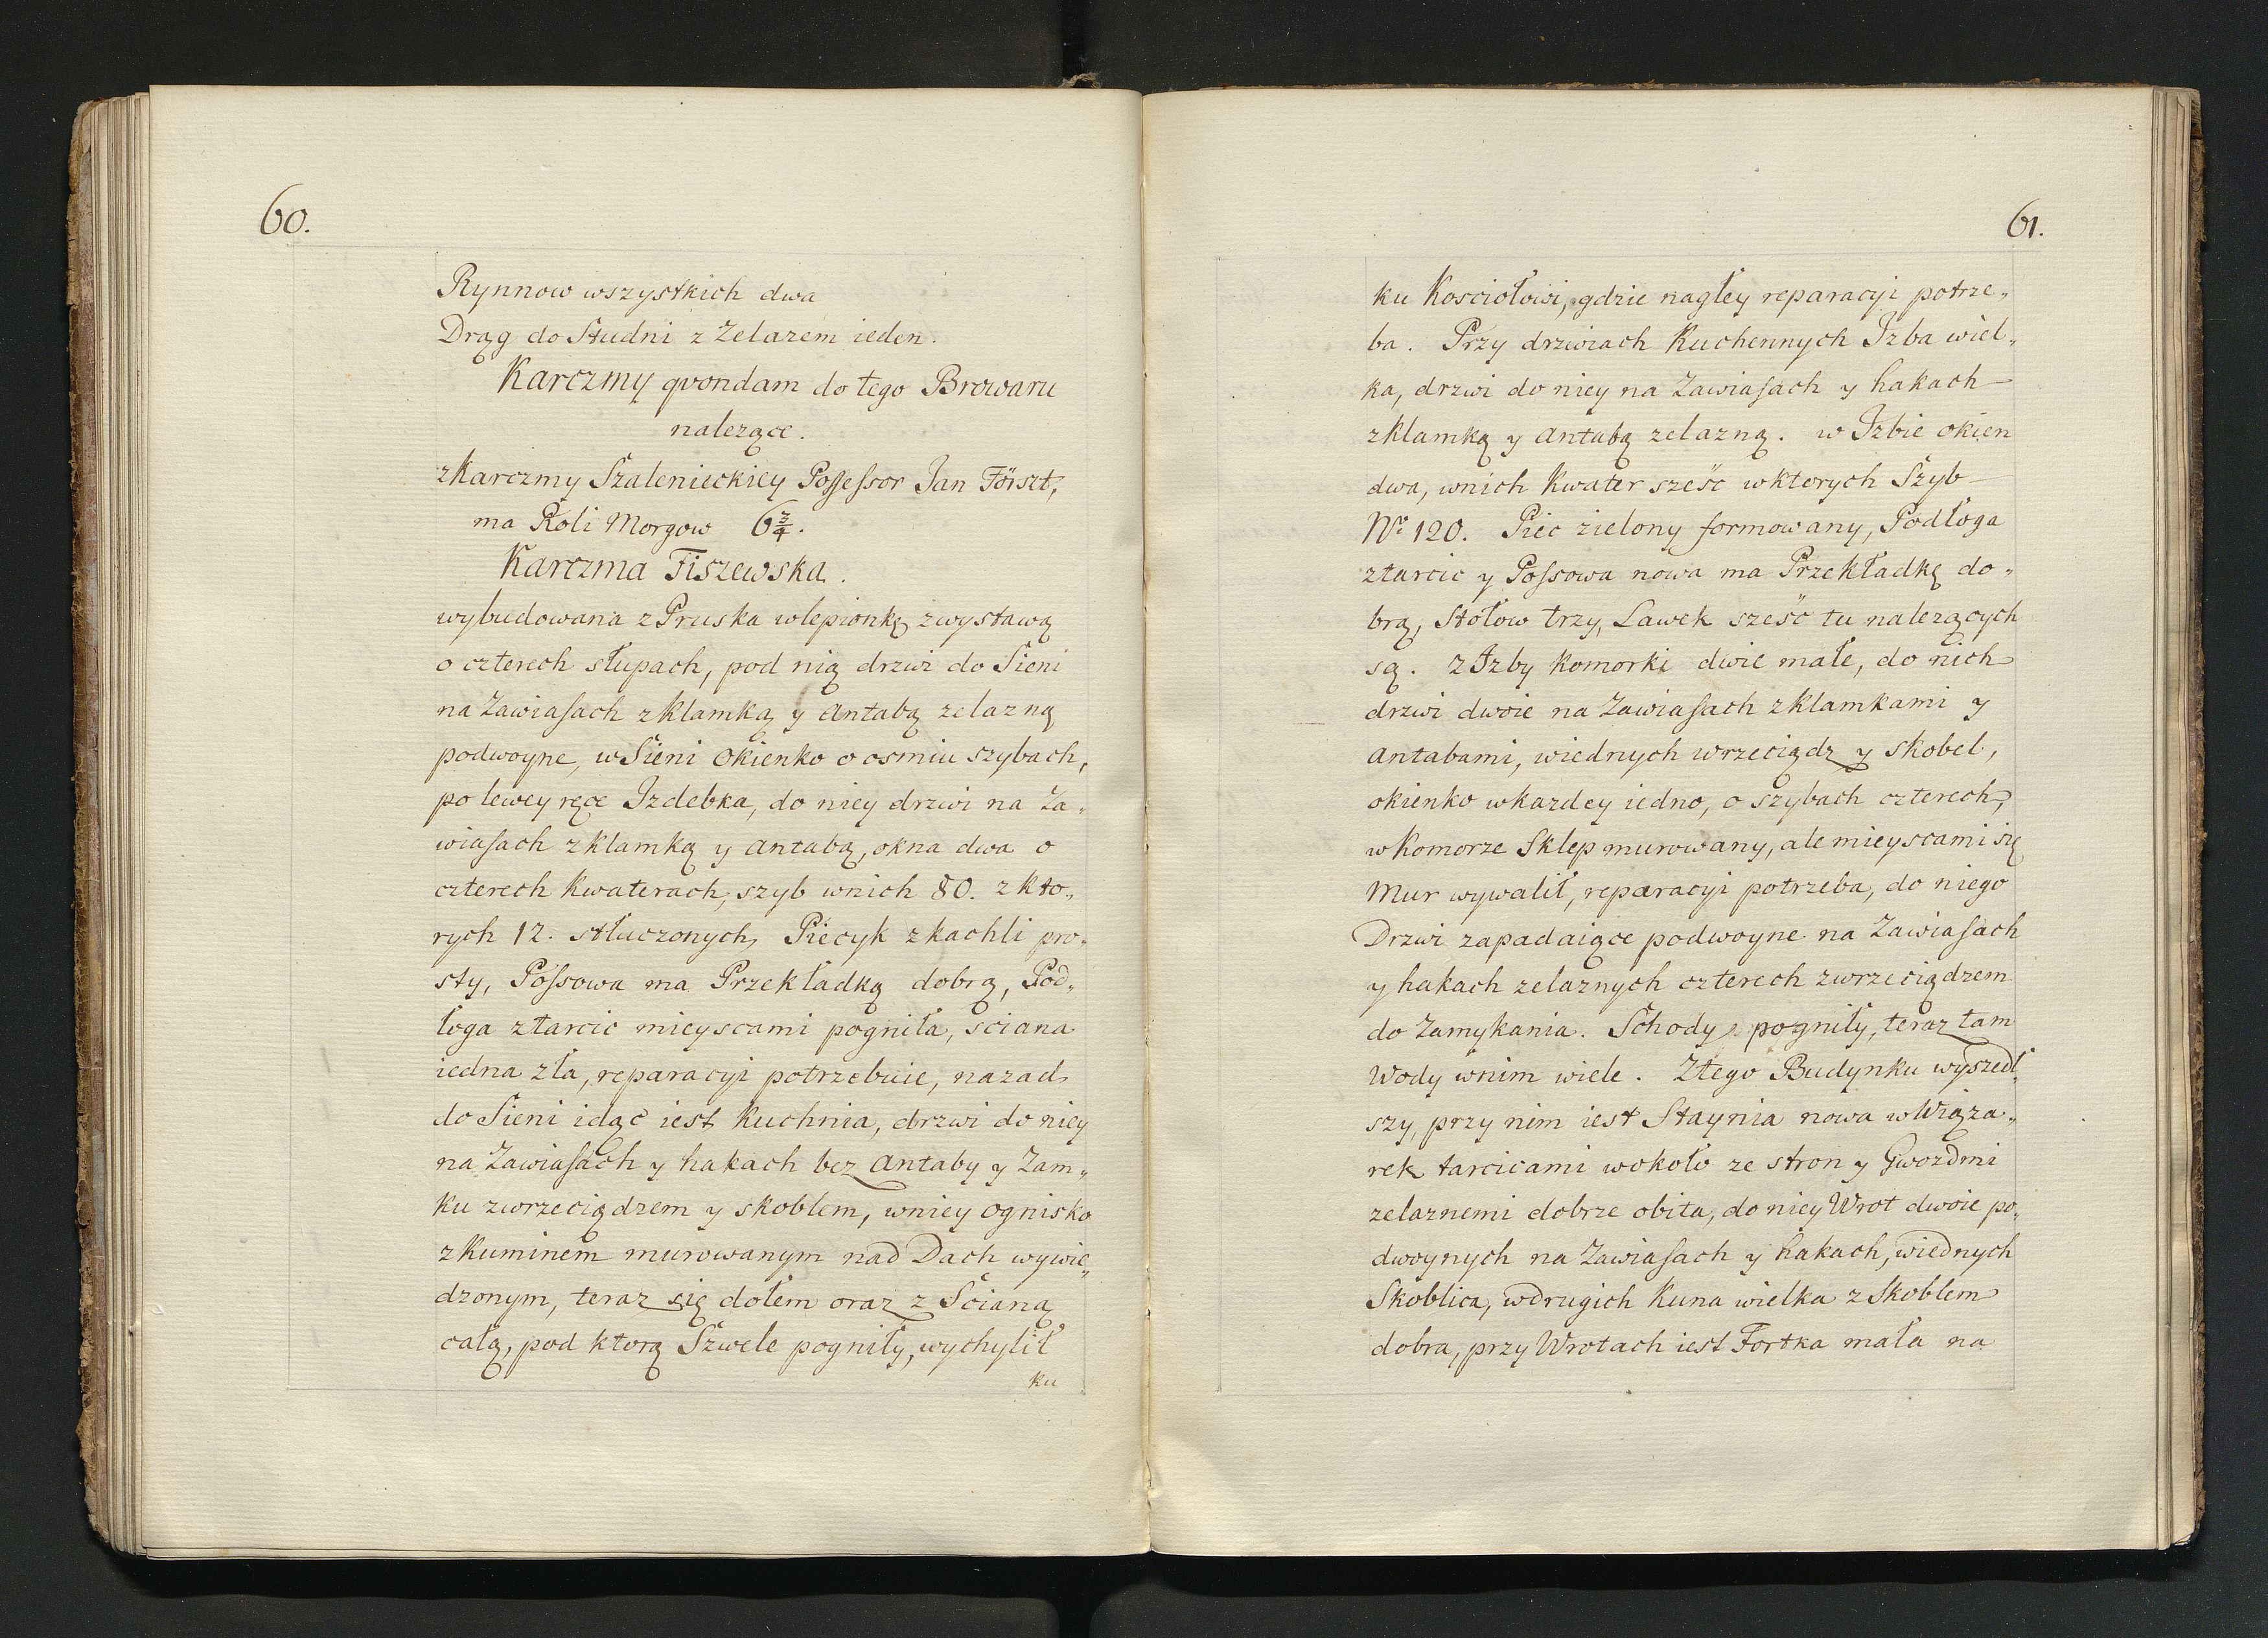 60.
Rynnow wszystkich dwa
Drąg do Studni z Zelazem ieden.
Karczmy qvondam do tego Browaru
nalezące.
z Karczmy Szalenieckiey Possessor Jan Förszt,
ma Roli Morgow 6 3/4.
Karczma Fiszewska.
wybudowana z Pruska wlepionkę z wystawą
o czterech słupach, pod nią drzwi do Sieni
na Zawiasach z klamką y antabą zelazną
podwoyne, w Sieni okienko o osmiu szybach,
po lewey ręce Izdebka, do niey drzwi na Za„
wiasach z klamką y antabą, okna dwa o
czterech Kwaterach, szyb wnich 80. z kto„
rych 12. stłuczonych, Piecyk z kachli pro„
sty, Possowa ma Przekładką dobrą, Pod„
łoga z tarcic mieyscami pogniła, sciana
iedna zła, reparacyi potrzebuie, nazad
do Sieni idąc iest Kuchnia, drzwi do niey
na Zawiasach y hakach bez antaby y Zam„
ku zwrzeciądzem y skoblem, wniey ognisko
z Kuminem murowanym nad Dach wywie„
dzonym, teraz się dołem oraz z Scianą
całą, pod ktorą Szwele pogniły, wychylił
ku
61.
ku Kosciołowi, gdzie nagłey reparacyi potrze„
ba. Przy drzwiach Kuchennych Izba wiel„
ka, drzwi do niey na Zawiasach y hakach
z klamką y antabą zelazną. w Izbie okien
dwa, wnich Kwater sześć w ktorych Szyb
No 120. Piec zielony formowany, Podłoga
z tarcic y Possowa nowa ma Przekładkę do„
brą, Stołow trzy, Lawek sześć tu nalezących
są. z Izby Komorki dwie małe, do nich
drzwi dwoie na Zawiasach z klamkami y
antabami, wiednych wrzeciądz y skobel,
okienko w kazdey iedno, o szybach czterech,
w Komorze Sklep murowany, ale mieyscami się
Mur wywalił, reparacyi potrzeba, do niego
Drzwi zapadaiące podwoyne na Zawiasach
y hakach zelaznych czterech zwrzeciądzem
do Zamykania. Schody pogniły, teraz tam
Wody wnim wiele. Z tego Budynku wyszedł„
szy, przy nim iest Staynia nowa w Wiąza„
rek tarcicami wokoło ze stron y Gwozdmi
zelaznemi dobrze obita, do niey Wrot dwoie po„
dwoynych na Zawiasach y hakach, wiednych
Skoblica, w drugich Kuna wielka z Skoblem
dobra, przy Wrotach iest Fortka mała na